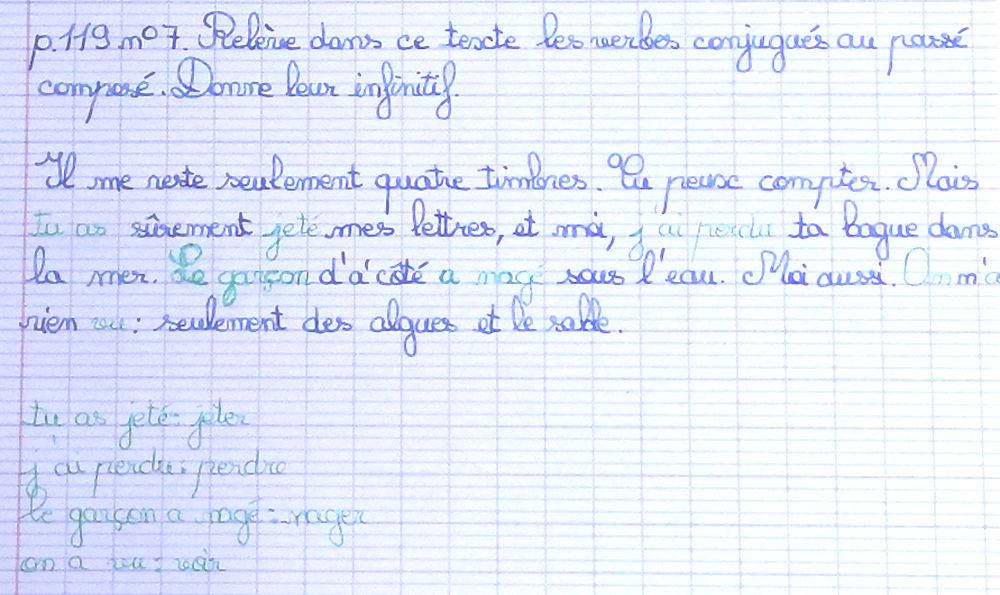 p.119 n°7. Relève dans ce texte les verbes conjugués au passé
composé. Donne leur infinitif.
Il me reste seulement quatre timbres. Tu peux compter. Mais
tu as sûrement jeté mes lettres, et moi, j'ai perdu ta bague dans
la mer. Le garçon d'à côté a nagé sous l'eau. Moi aussi. On n'a
rien vu : seulement des algues et le sable.
tu as jeté : jeter
j'ai perdu : perdre
le garçon a nagé : nager
on a vu : voir